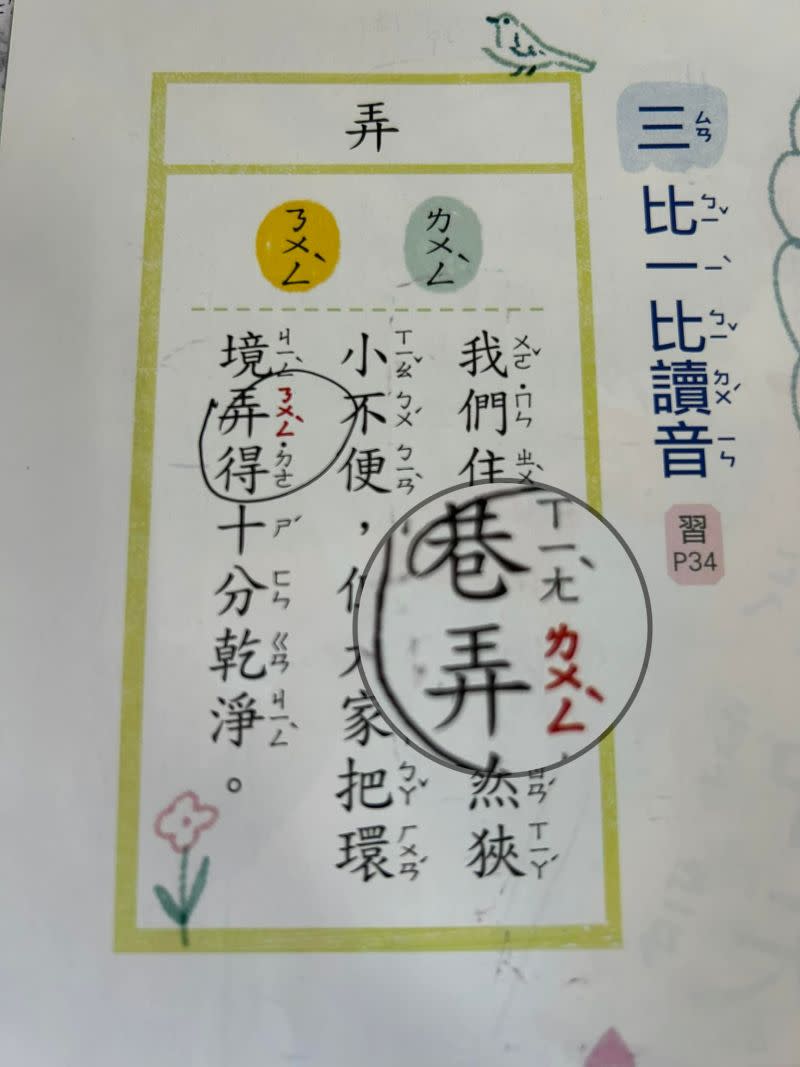 三ㄙㄢ比ㄅㄧˇ一ㄧˋ比ㄅㄧˇ讀ㄉㄨˊ音ㄧㄣ
習
P34
弄
ㄌㄨㄥˋ
ㄋㄨㄥˋ
我ㄨㄛˇ們˙ㄇㄣ住ㄓㄨˋ巷ㄒㄧㄤˋ弄ㄌㄨㄥˋ然ㄖㄢˊ狹ㄒㄧㄚˊ
小ㄒㄧㄠˇ不ㄅㄨˊ便ㄅㄧㄢˋ，家把ㄅㄚˇ環ㄏㄨㄢˊ
境ㄐㄧㄥˋ弄ㄋㄨㄥˋ得˙ㄉㄜ十ㄕˊ分ㄈㄣ乾ㄍㄢ淨ㄐㄧㄥˋ。